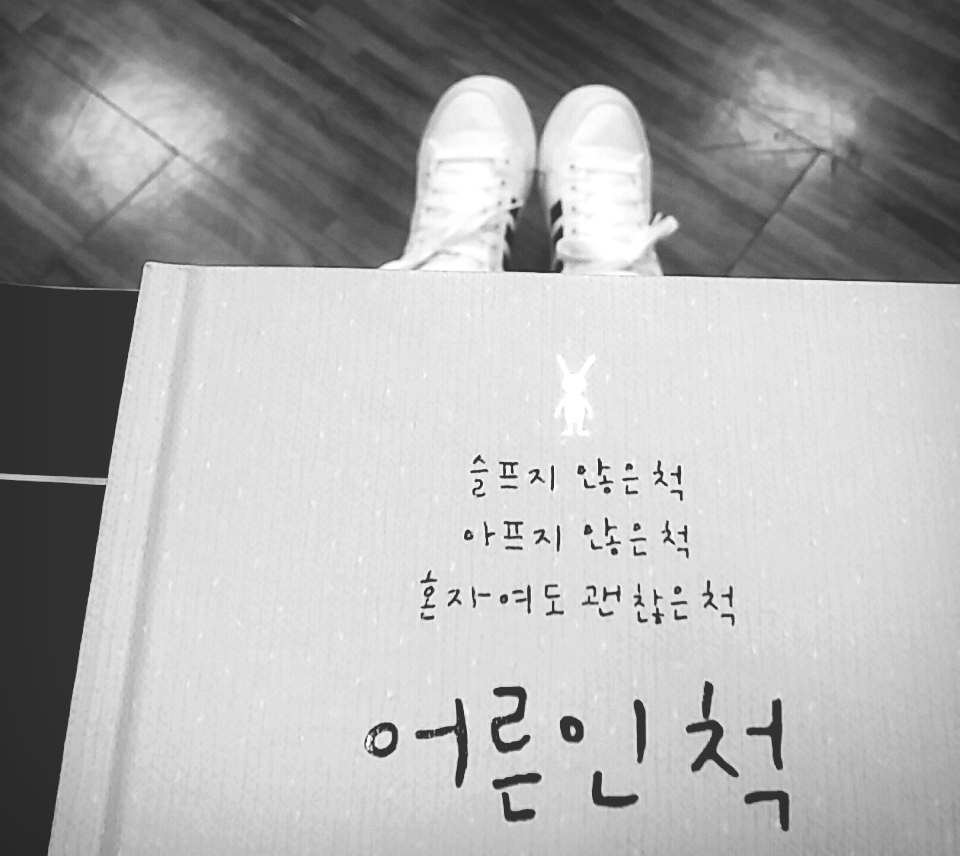 슬프지 않은 척
아프지 않은 척
혼자여도 괜찮은 척
어른인 척